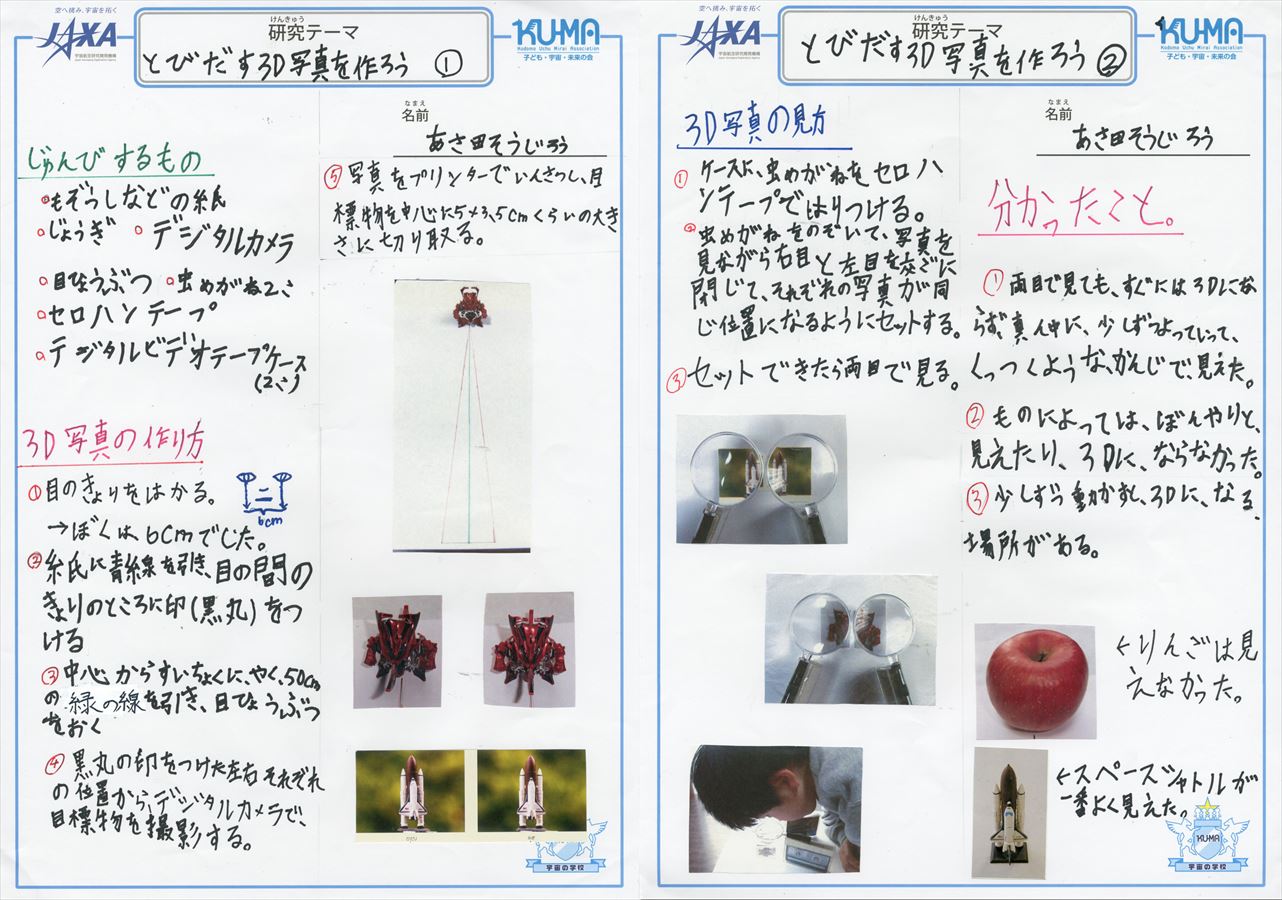 空へ挑み、宇宙を拓く
JAXA
宇宙航空研究開発機構
Japan Aerospace Exploration Agency
けんきゅう
研究テーマ
とびだす3D写真を作ろう ①
KUMA
Kodomo Uchu Mirai Association
子ども・宇宙・未来の会
なまえ
名前
あさ田そうじろう
じゅんびするもの
もぞうしなどの紙
じょうぎ
デジタルカメラ
目ひょうぶつ
虫めがね2こ
セロハンテープ
デジタルビデオテープケース
(2こ)
3D写真の作り方
①目のきょりをはかる。
6cm
→ぼくは、6cmでした。
②紙に青線を引き、目の間の
きょりのところに印(黒丸)をつ
ける
③中心からすいちょくに、やく、50cm
の緑の線を引き、目ひょうぶつ
をおく
④黒丸の印をつけた左右それぞれ
の位置から、デジタルカメラで、
目標物を撮影する。
⑤写真をプリンターでいんさつし、目
標物を中心に5×3.5cmくらいの大き
さに切り取る。
宇宙の学校
空へ挑み、宇宙を拓く
JAXA
宇宙航空研究開発機構
Japan Aerospace Exploration Agency
けんきゅう
研究テーマ
とびだす3D写真を作ろう②
KUMA
Kodomo Uchu Mirai Association
子ども・宇宙・未来の会
なまえ
名前
あさ田そうじろう
3D写真の見方
①ケースに、虫めがねをセロハ
ンテープではりつける。
②虫めがねをのぞいて、写真を
見ながら右目と左目を交ごに
閉じて、それぞれの写真が同
じ位置になるようにセットする。
③セットできたら両目で見る。
分かったこと。
①両目で見ても、すぐには3Dにな
らず、真ん中に、少しずつよっていって、
くっつくような、かんじで、見えた。
②ものによっては、ぼんやりと、
見えたり、3Dに、ならなかった。
③少しずつ動かすと、3Dに、なる、
場所がある。
←りんごは見
えなかった。
←スペースシャトルが
一番よく見えた。
KUMA
宇宙の学校